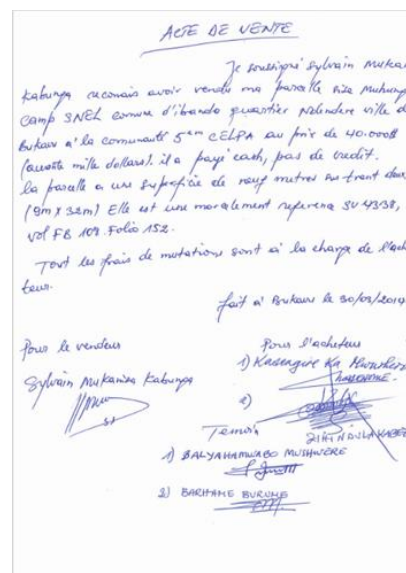 ACTE DE VENTE
Je soussigné Sylvain Mukan
Kabunga reconais avoir vendu ma parcelle sise Muhungu
Camp SNEL comune d'ibanda quartier Ndendere ville de
Bukavu à la comunauté 5em CELPA au prix de 40.000$
(quarante mille dollars). il a payé cash, pas de credit.
la parcelle a une superficie de neuf metres sur trent deux
(9m x 32m) Elle est une morcelement reference SV 4338,
vol FB 109 Folio 152.
Tout les frais de mutations sont à la charge de l'ache
teur.
fait à Bukavu le 30/03/2014
Pour le vendeur
Pour l'acheteur
1) Kasengire Ka
Sylvain Mukaniza Kabunga
2)
Temoin
1) BALYAHAMWABO MUSHWERE
2) BARHAME BURUME